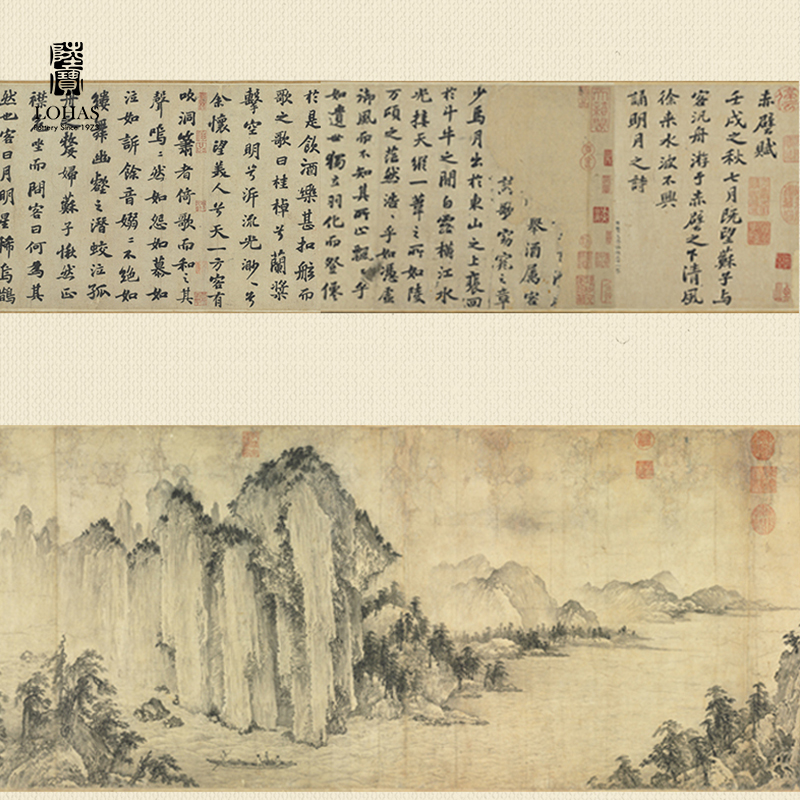 陸寶
LOHAS
赤壁賦
壬戌之秋七月既望蘇子与
客汎舟游于赤壁之下清風
徐来水波不興
誦明月之詩
舉酒屬客
歌窈窕之章
少焉月出於東山之上裴回
於斗牛之間白露橫江水
光接天縱一葦之所如陵
万頃之茫然浩〻乎如憑虛
御風而不知其所止飄〻乎
如遺世獨立羽化而登僊
於是飲酒樂甚扣舷而
歌之歌曰桂棹兮蘭槳
擊空明兮泝流光渺〻兮
余懷望美人兮天一方客有
吹洞簫者倚歌而和之其
聲嗚〻然如怨如慕如
泣如訴餘音嫋〻不絕如
縷舞幽壑之潛蛟泣孤
舟嫠婦蘇子愀然正
襟坐而問客曰何為其
然也客曰月明星稀烏鵲